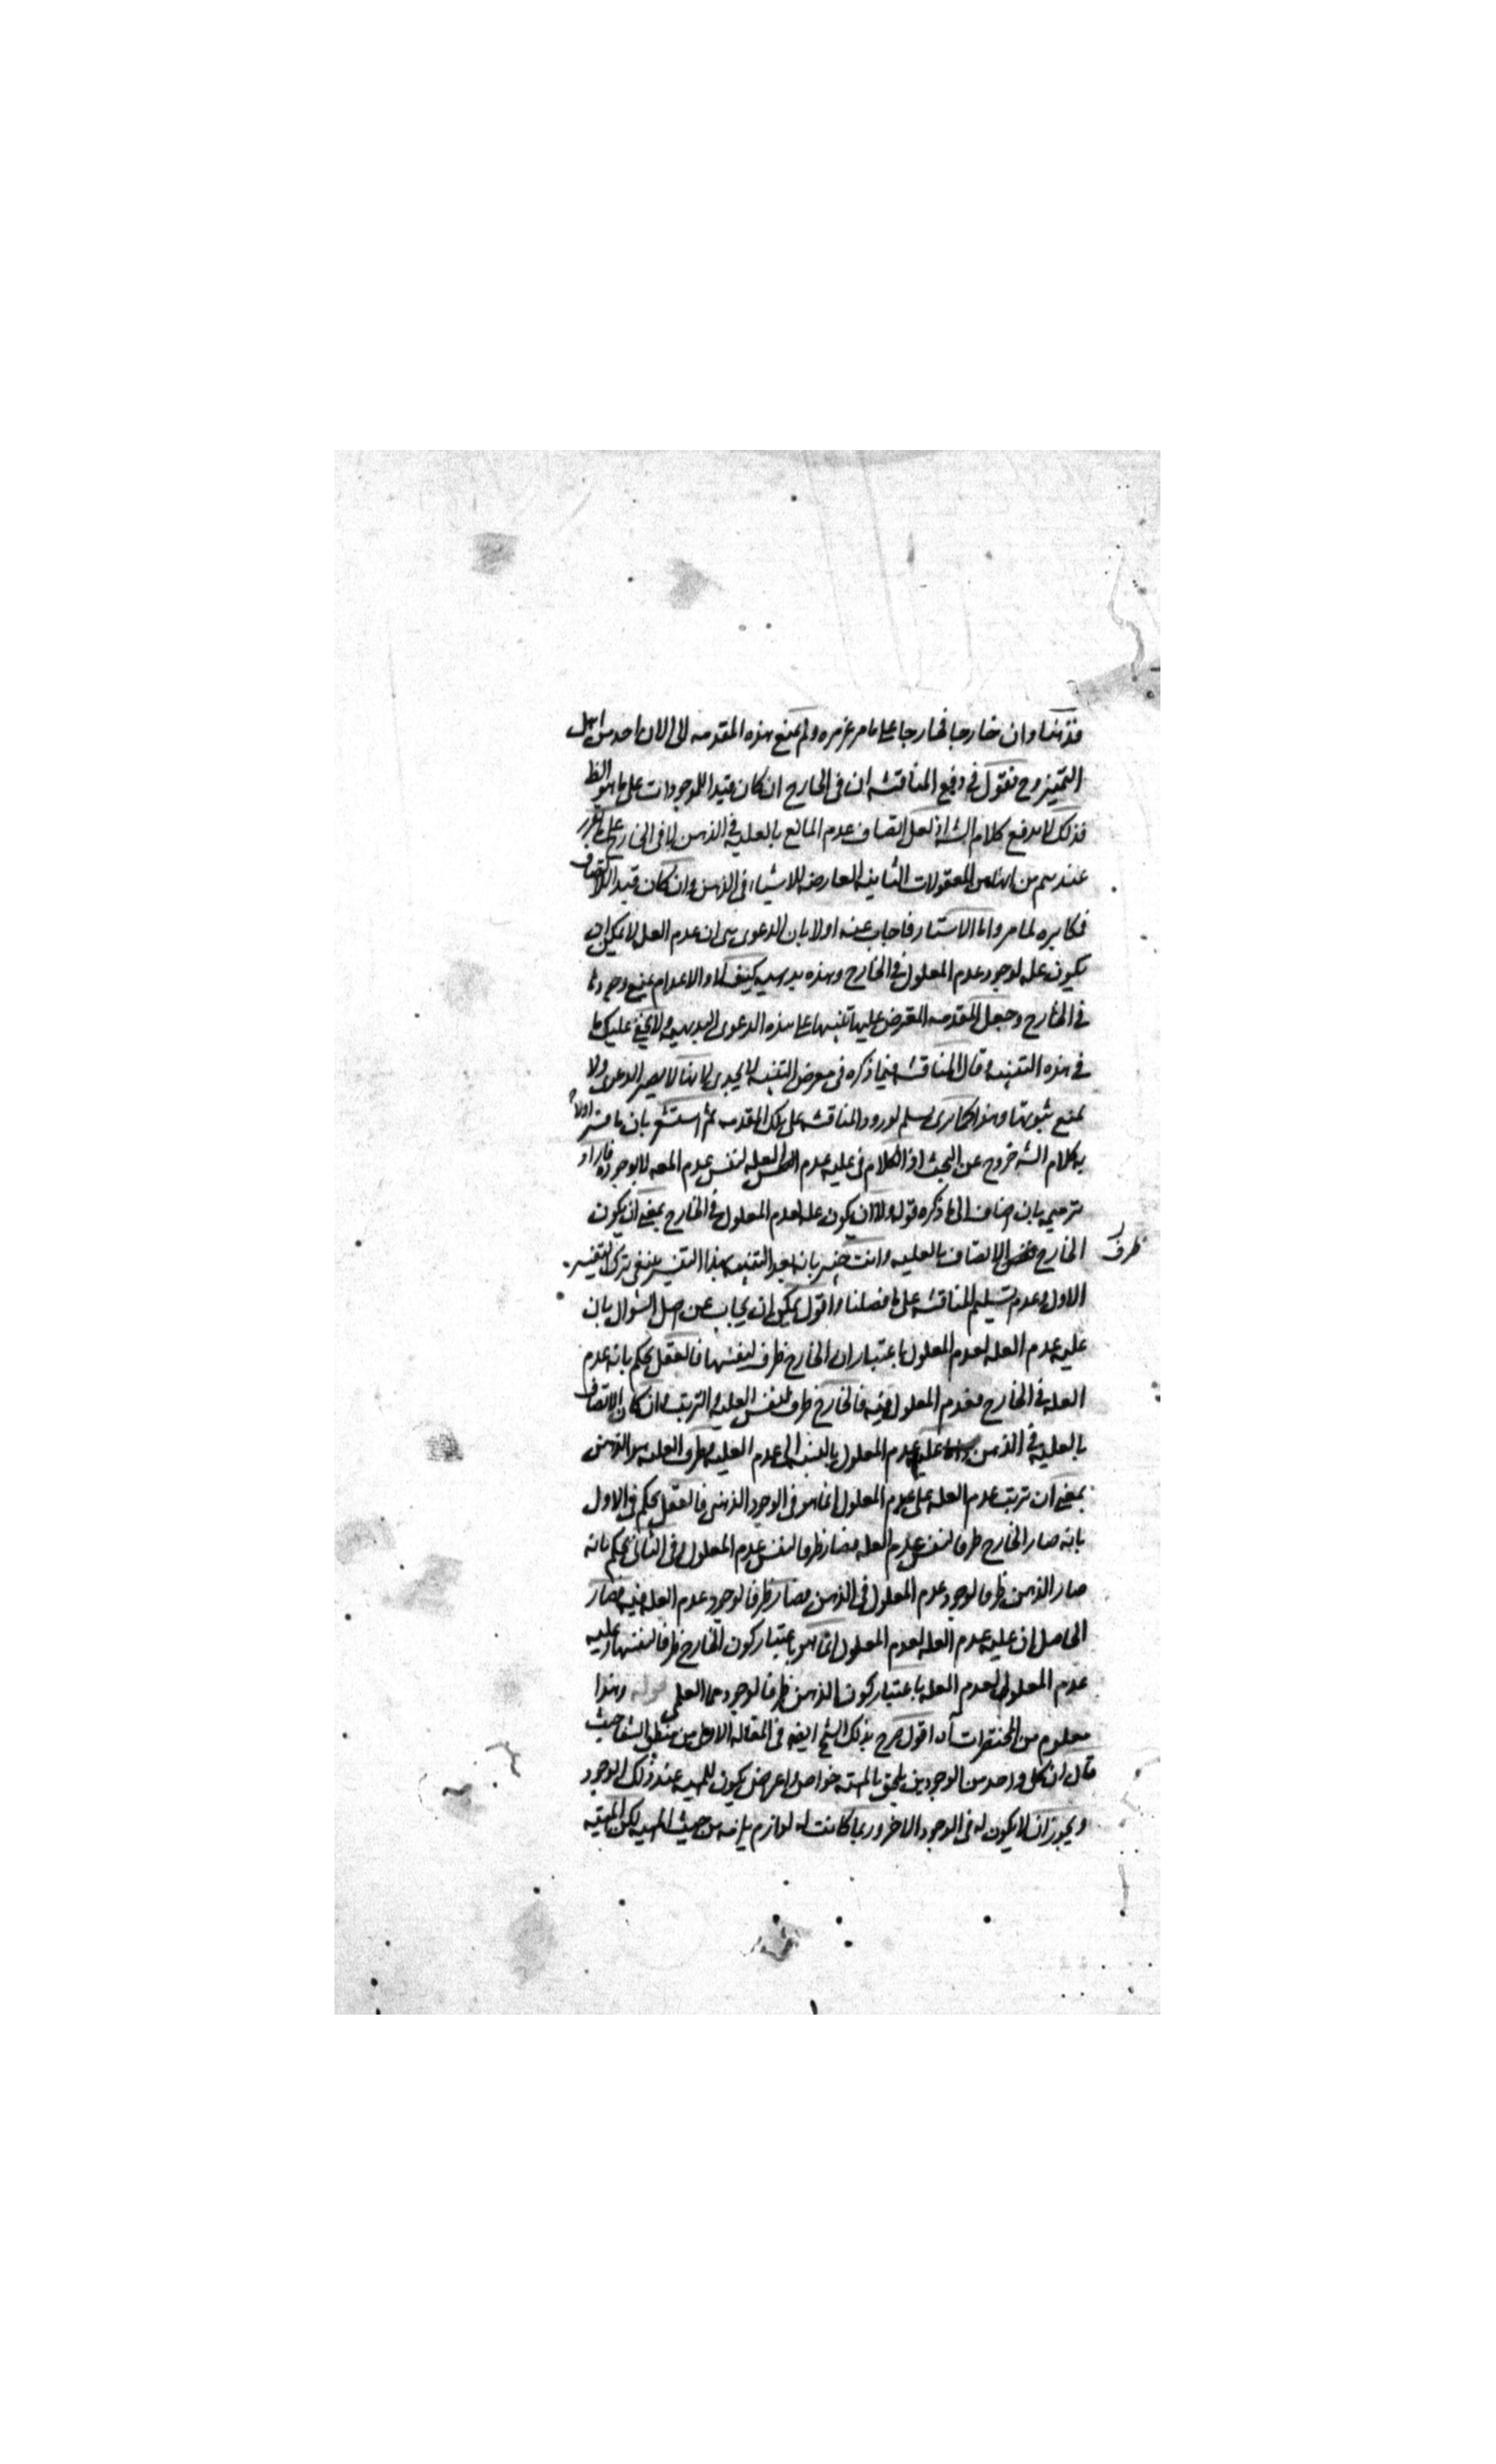 فذهنا وان خارجا فخارجا على ما مر غير مره ولم يمنع هذه المقدمه الى الان احد من اهل
التميز وح نقول فى دفع المناقشه ان فى الخارج ان كان قيدا للموجودات على ما هو الظ
فذلك لا يدفع كلام الش اذ لعل اتصاف عدم المانع بالعليه فى الذهن لا فى الخارج على ما تقرر
عندهم من انها من المعقولات الثانيه العارضه للاشياء فى الذهن وان كان قيدا للاتصاف
فكابره لما مر واما الاستتار فاجاب عنه اولا بان الدعوى هى ان عدم العله لا يمكن ان
يكون عله لوجود عدم المعلول فى الخارج وهذه بديهيه كيف لا والاعدام يمتنع وجودها
فى الخارج وجعل المقدمه المعترض عليها تنبيها على هذه الدعوى البديهيه ولا يخفى عليك ما
فى هذه التنبيه وقال المناقشه فيما ذكره فى معرض التنبيه لا يجدى لانها لا يضر الدعوى ولا
يمنع ثبوتها وهذا كما ترى يسلم لورود المناقشه على تلك المقدمه ثم استشعر بان ما فسر اولا
به كلام الش خروج عن البحث اذ الكلام فى عليه عدم العله لنفس عدم المعه لا لوجوده فاراد
ترميمه بان اضاف الى ما ذكره قوله ولا ان يكون عله لعدم المعلول فى الخارج بمعنى ان يكون
الخارج ظرف الاتصاف بالعليه وانت خبير بانه بعد التنبيه بهذا التفسير ينبغى ترك التفسير
الاول وعدم تسليم المناقشه على ما فصلنا واقول يمكن ان يجاب عن اصل السوال بان
عليه عدم العله لعدم المعلول باعتبار ان الخارج ظرف لنفسها فالعقل يحكم بانه عدم
العله فى الخارج فعدم المعلول فيه فالخارج ظرف لنفس العليه والترتب وان كان الاتصاف
بالعليه فى الذهن عليه عدم المعلول بالنسبه الى عدم العليه فظرف العله هو الذهن
بمعنى ان ترتب عدم العله على عدم المعلول انما هو فى الوجود الذهنى فالعقل يحكم فى الاول
بانه صار الخارج ظرفا لنفس عدم العله فصار ظرفا لنفس عدم المعلول وفى الثانى يحكم بانه
صار الذهن ظرفا لوجود عدم المعلول فى الذهن فصار ظرفا لوجود عدم العله فيه فصار
الحاصل ان عليه عدم العله لعدم المعلول انما هو باعتبار كون الخارج ظرفا لنفسها وعليه
عدم المعلول لعدم العله باعتبار كون الذهن ظرفا لوجودهما العلمى قوله وهذا
معلوم من المختصرات آه اقول صرح بذلك الشيخ ايضه فى المقاله الاولى من منطق الشفا حيث
قال ان كل واحد من الوجودين يلحق بالمهيه خواص واعراض يكون للمهيه عند ذلك الوجود
ويجوز ان لا يكون له فى الوجود الاخر وربما كانت له لوازم يلزمه من حيث المهيه لكن المهيه
ظرف